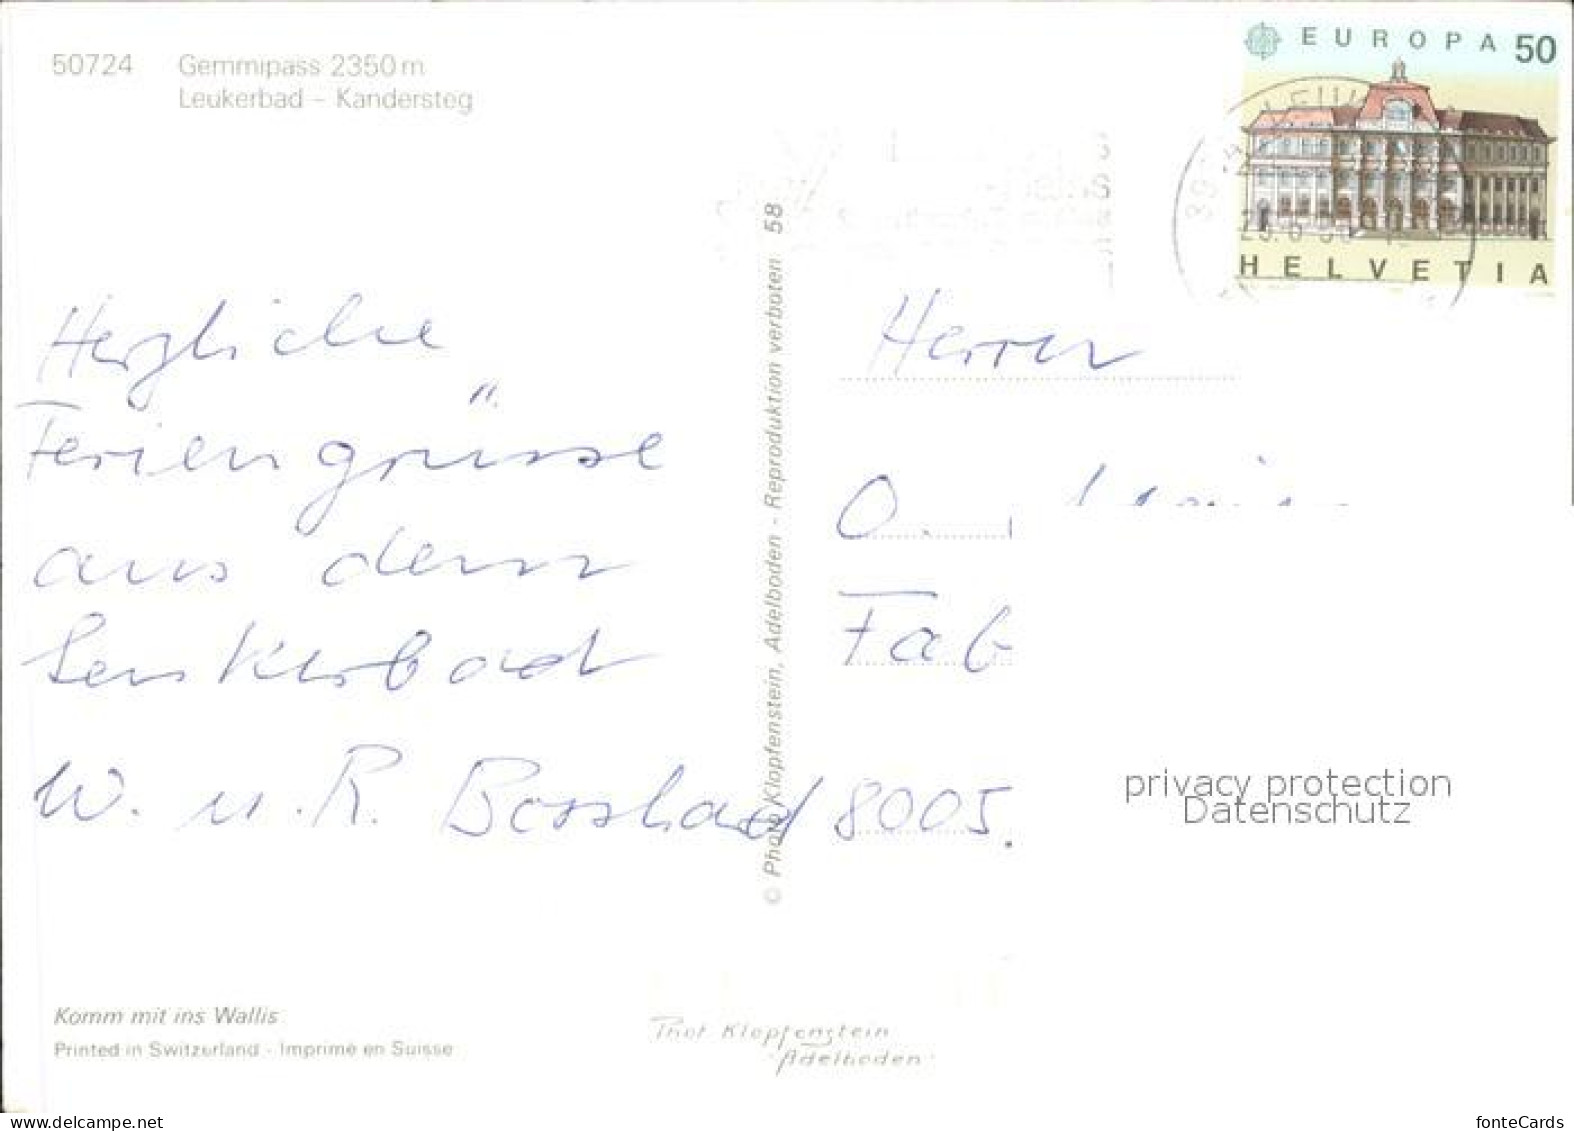 50724 Gemmipass 2350 m
Leukerbad – Kandersteg
EUROPA 50
HELVETIA
Herzliche
Feriengrüsse
aus dem
Leukerbad
W. u. R. Bosshard
© Photo Klopfenstein, Adelboden - Reproduktion verboten 58
Herrn
O.
Fab
8005
privacy protection
Datenschutz
Komm mit ins Wallis
Printed in Switzerland - Imprimé en Suisse
Phot. Klopfenstein
Adelboden
delcampe.net
fonteCards